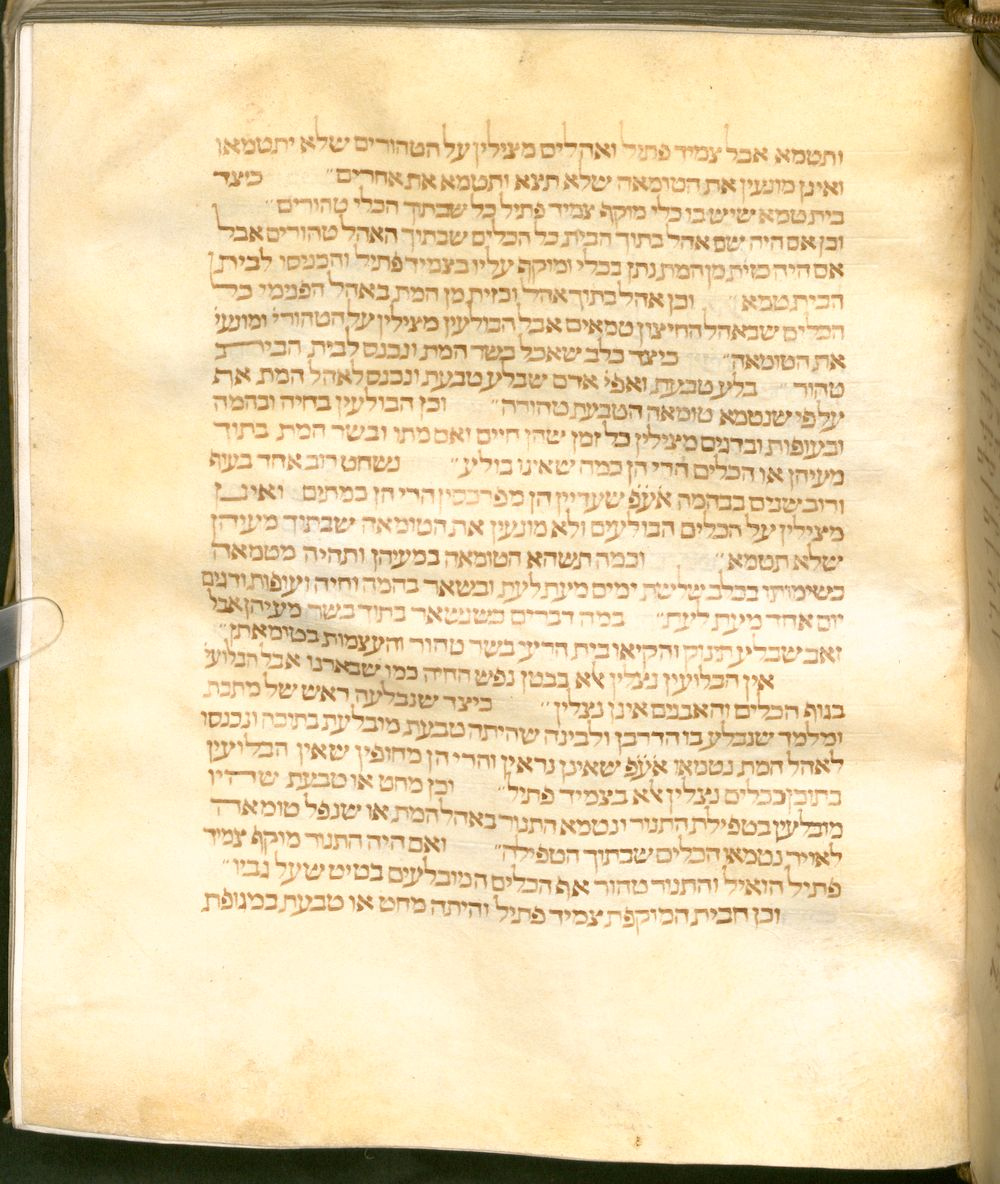 ותטמא אבל צמיד פתיל ואהלים מצילין על הטהורים שלא יתטמאו
ואינן מונעין את הטומאה שלא תצא ותטמא את אחרים״ כיצד
בית טמא שיש בו כלי מוקף צמיד פתיל כל שבתוך הכלי טהורים״
וכן אם היה שם אהל בתוך הבית כל הכלים שבתוך האהל טהורים אבל
אם היה כזית מן המת נתן בכלי ומוקף עליו בצמיד פתיל והכניסו לבית
הבית טמא״ וכן אהל בתוך אהל וכזית מן המת באהל הפנימי כל
הכלים שבאהל החיצון טמאים אבל הבולעין מצילין על הטהורי׳ ומונעי׳
את הטומאה״ כיצד כלב שאכל בשר המת ונכנס לבית הבית
טהור״ בלע טבעת ואפי׳ אדם שבלע טבעת ונכנס לאהל המת אף
על פי שנטמא טומאה הטבעת טהורה״ וכן הבולעין בחיה ובהמה
ובעופות ובדגים מצילין כל זמן שהן חיים ואם מתו ובשר המת בתוך
מעיהן או הכלים הרי הן כמה שאינו בולע״ נשחט רוב אחד בעוף
ורוב שנים בבהמה אע״פ שעדיין הן מפרכסין הרי הן כמתים ואינן
מצילין על הכלים הבולעים ולא מונעין את הטומאה שבתוך מעיהן
שלא תטמא״ וכמה תשהא הטומאה במעיהן ותהיה מטמאה
כשימותו בכלב שלשת ימים מעת לעת ובשאר בהמה וחיה ועופות ודגים
יום אחד מעת לעת״ במה דברים כשנשאר בתוך בשר מעיהן אבל
זאב שבלע תנוק והקיאו בית הרעי בשר טהור והעצמות בטומאתן״
אין הבלועין נצלין אלא בבטן נפש החיה כמו שבארנו אבל הבלועי׳
בגוף הכלים והאבנים אינן נצלין״ כיצד שנבלעה ראש של מתכת
ומלמד שנבלע בו הדרבן ולבינה שהיתה טבעת מובלעת בתוכה ונכנסו
לאהל המת נטמאו אע״פ שאינן נראין והרי הן מחופין שאין הבלועין
בתוכן ככלים נצלין אלא בצמיד פתיל״ וכן מחט או טבעת שהיו
מובלעין בטפילת התנור ונטמא התנור באהל המת או שנפל טומאה
לאויר נטמאו הכלים שבתוך הטפילה״ ואם היה התנור מוקף צמיד
פתיל הואיל והתנור טהור אף הכלים המובלעים בטיט שעל גביו״
וכן חבית המוקפת צמיד פתיל והיתה מחט או טבעת במגופת